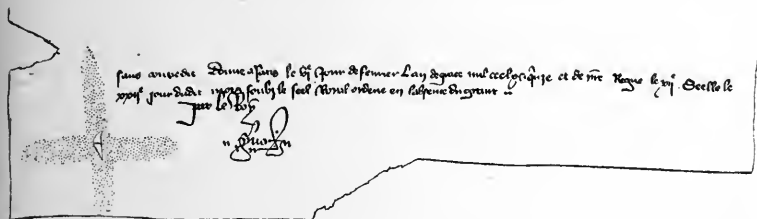 sans contredit Donne a paris le jour de fevrier Lan de grace mil et de nre Regne le xij^e Seelle le
jour dudit mois soubz le seel Royal ordene en labsence du grant
par le Roy